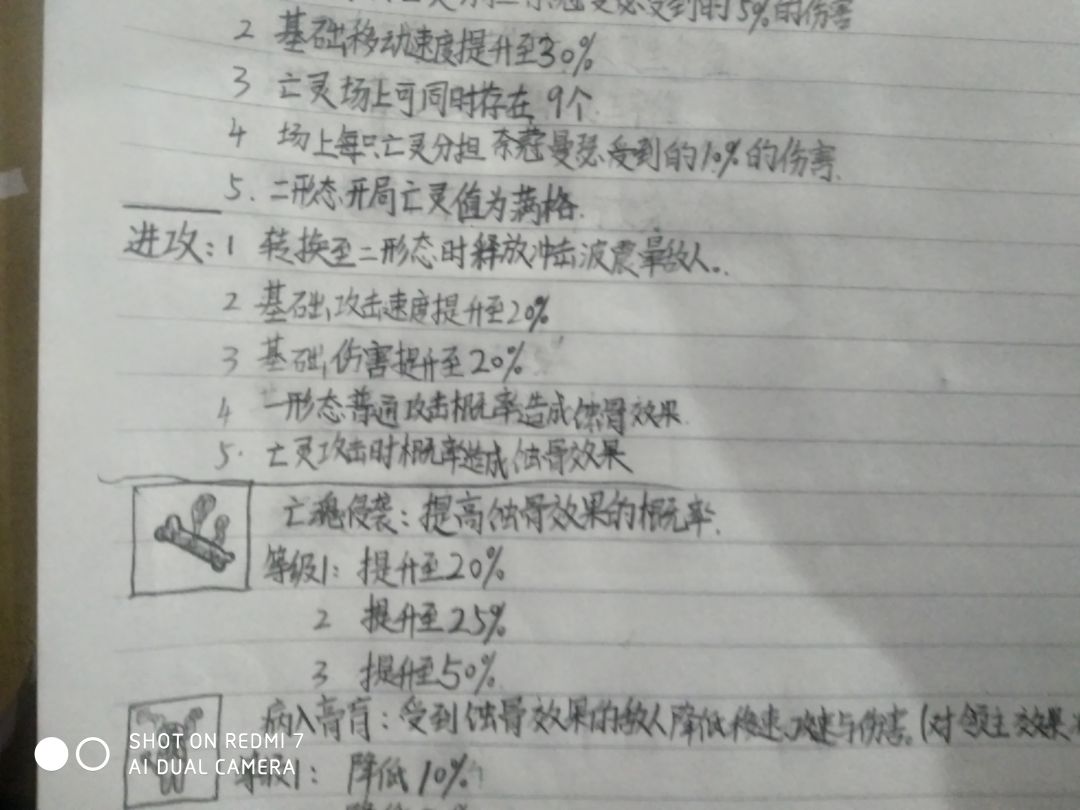 受到的5%的伤害
2 基础移动速度提升至30%
3 亡灵场上可同时存在9个
4 场上每只亡灵分担奈蔻曼瑟受到的10%的伤害.
5. 二形态开局亡灵值为满格.
进攻:1 转换至二形态时释放冲击波震晕敌人..
2 基础攻击速度提升至20%
3 基础伤害提升至20%
4 一形态普通攻击概率造成蚀骨效果.
5. 亡灵攻击时概率造成蚀骨效果
亡魂侵袭:提高蚀骨效果的概率.
等级1: 提升至20%
2 提升至25%
3 提升至50%
病入膏肓:受到蚀骨效果的敌人降低移速、攻速与伤害。(对领主效果
SHOT ON REDMI 7
AI DUAL CAMERA
等级1: 降低10%